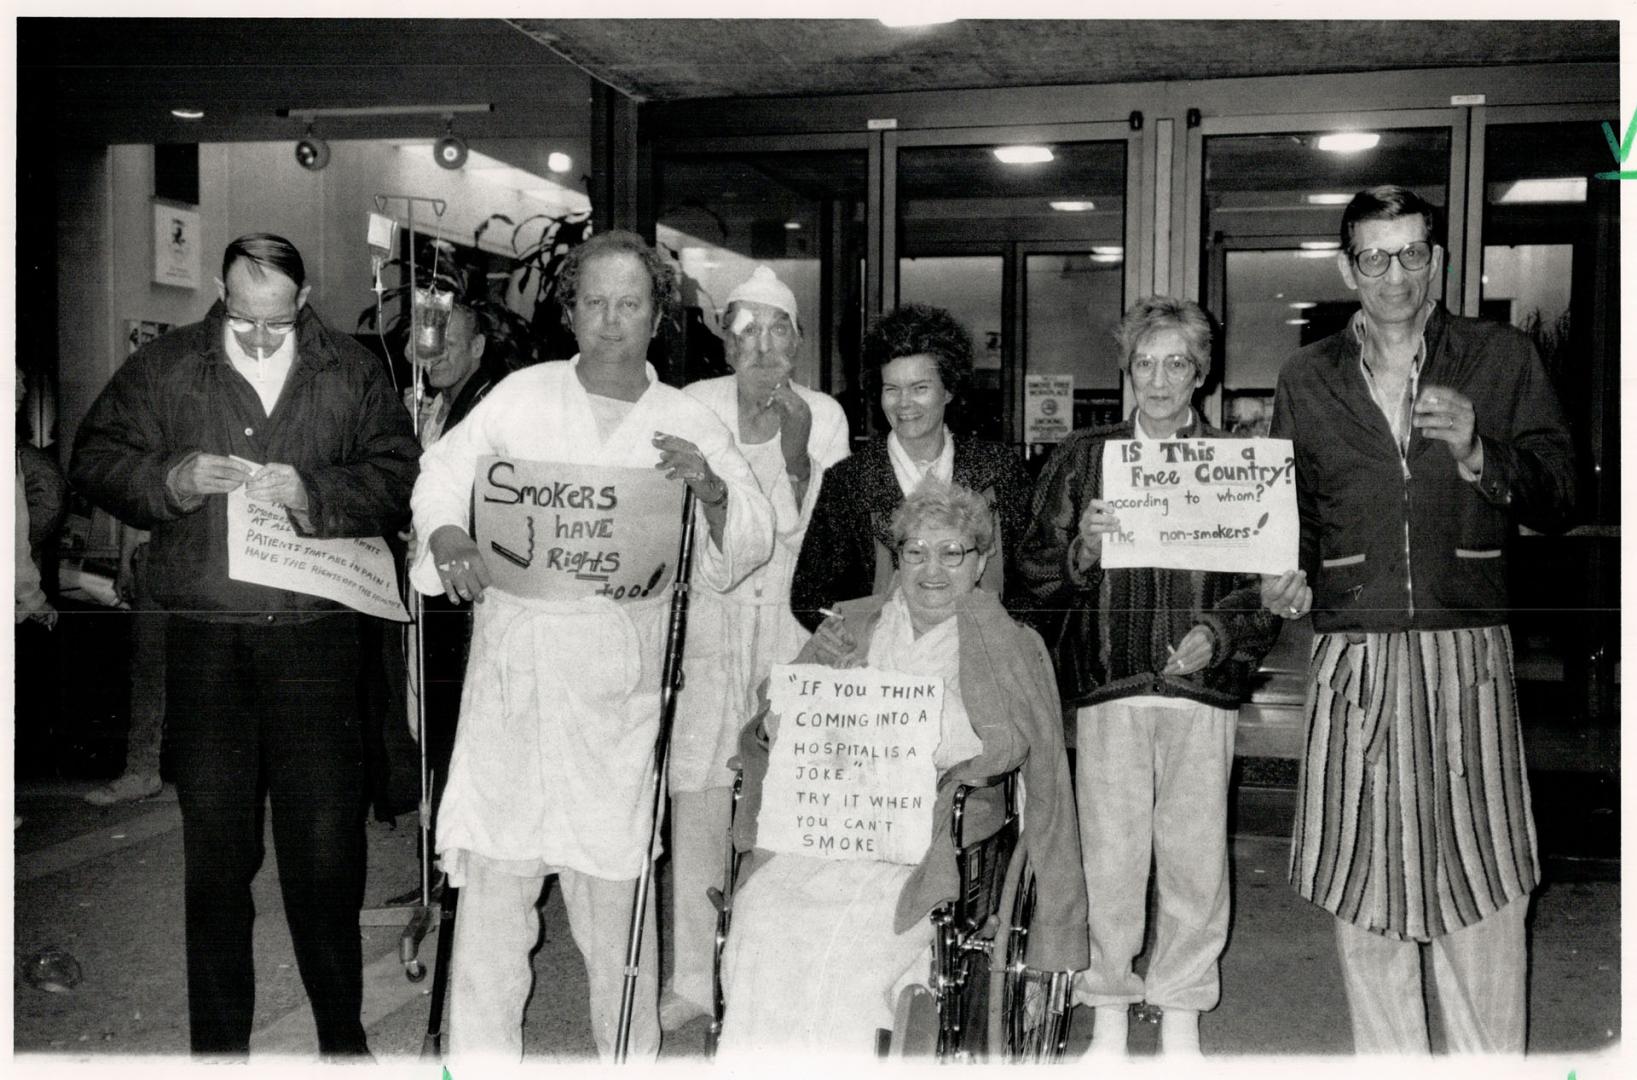 SMOKERS
HAVE
Rights
too!
AT ALL
RIGHTS
PATIENTS THAT ARE IN PAIN!
HAVE THE RIGHTS
"IF YOU THINK
COMING INTO A
HOSPITAL IS A
JOKE."
TRY IT WHEN
YOU CAN'T
SMOKE
IS This a
Free Country?
according to whom?
The non-smokers!
SMOKE FREE
WORKPLACE
SMOKING
PROHIBITED